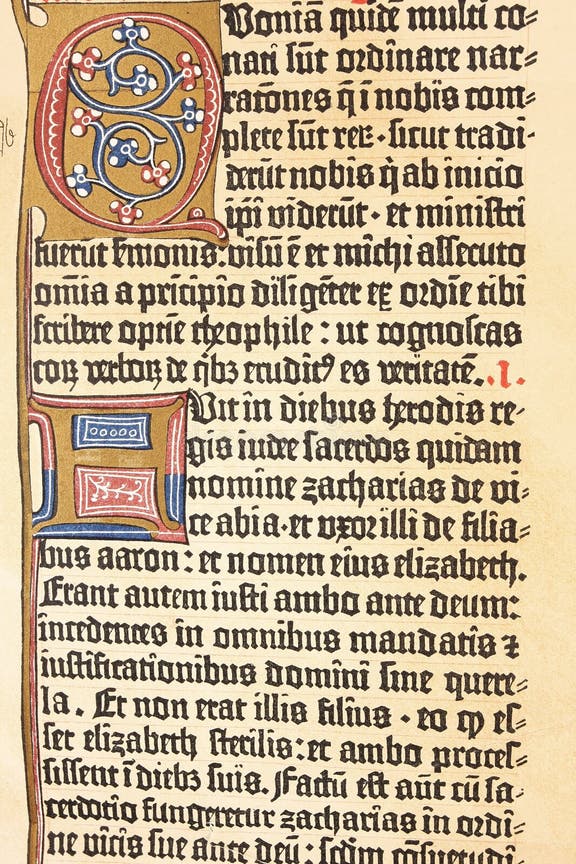 Quoniā quidē multi co⸗
nati sūt ordinare nar⸗
rationes q̄ i nobis com⸗
plete sūt reꝝ · sicut tradi⸗
derūt nobis q̇ ab inicio
ip̄i viderūt · et ministri
fuerūt s̄monis: visū ē et mīchi assecuto
omīa a prīcipio diligēter ex ordīe tibi
scribere optīe theophile : ut cognoscas
eoꝝ verboꝝ de q̇bꝫ eruditꝰ es veritatē. .I.
Fuit in diebus herodis re⸗
gis iudee sacerdos quidam
nomine zacharias de vi⸗
ce abia · et vxor illi de filia⸗
bus aaron : et nomen eius elizabeth.
Erant autem iusti ambo ante deum:
incedentes in omnibus mandatis ⁊
iustificationibus domini sine quere⸗
la. Et non erat illis filius · eo ꝙ es⸗
set elizabeth sterilis: et ambo proces⸗
sissent ī diebꝫ suis. Factū est aūt cū sa⸗
cerdotio fungeretur zacharias in ordi⸗
ne vicis sue ante deū : scdm̄ cōsuetudi⸗